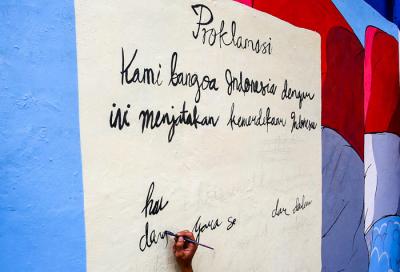 Proklamasi
Kami bangsa Indonesia dengan
ini menjatakan kemerdekaan Indonesia
dan dalam